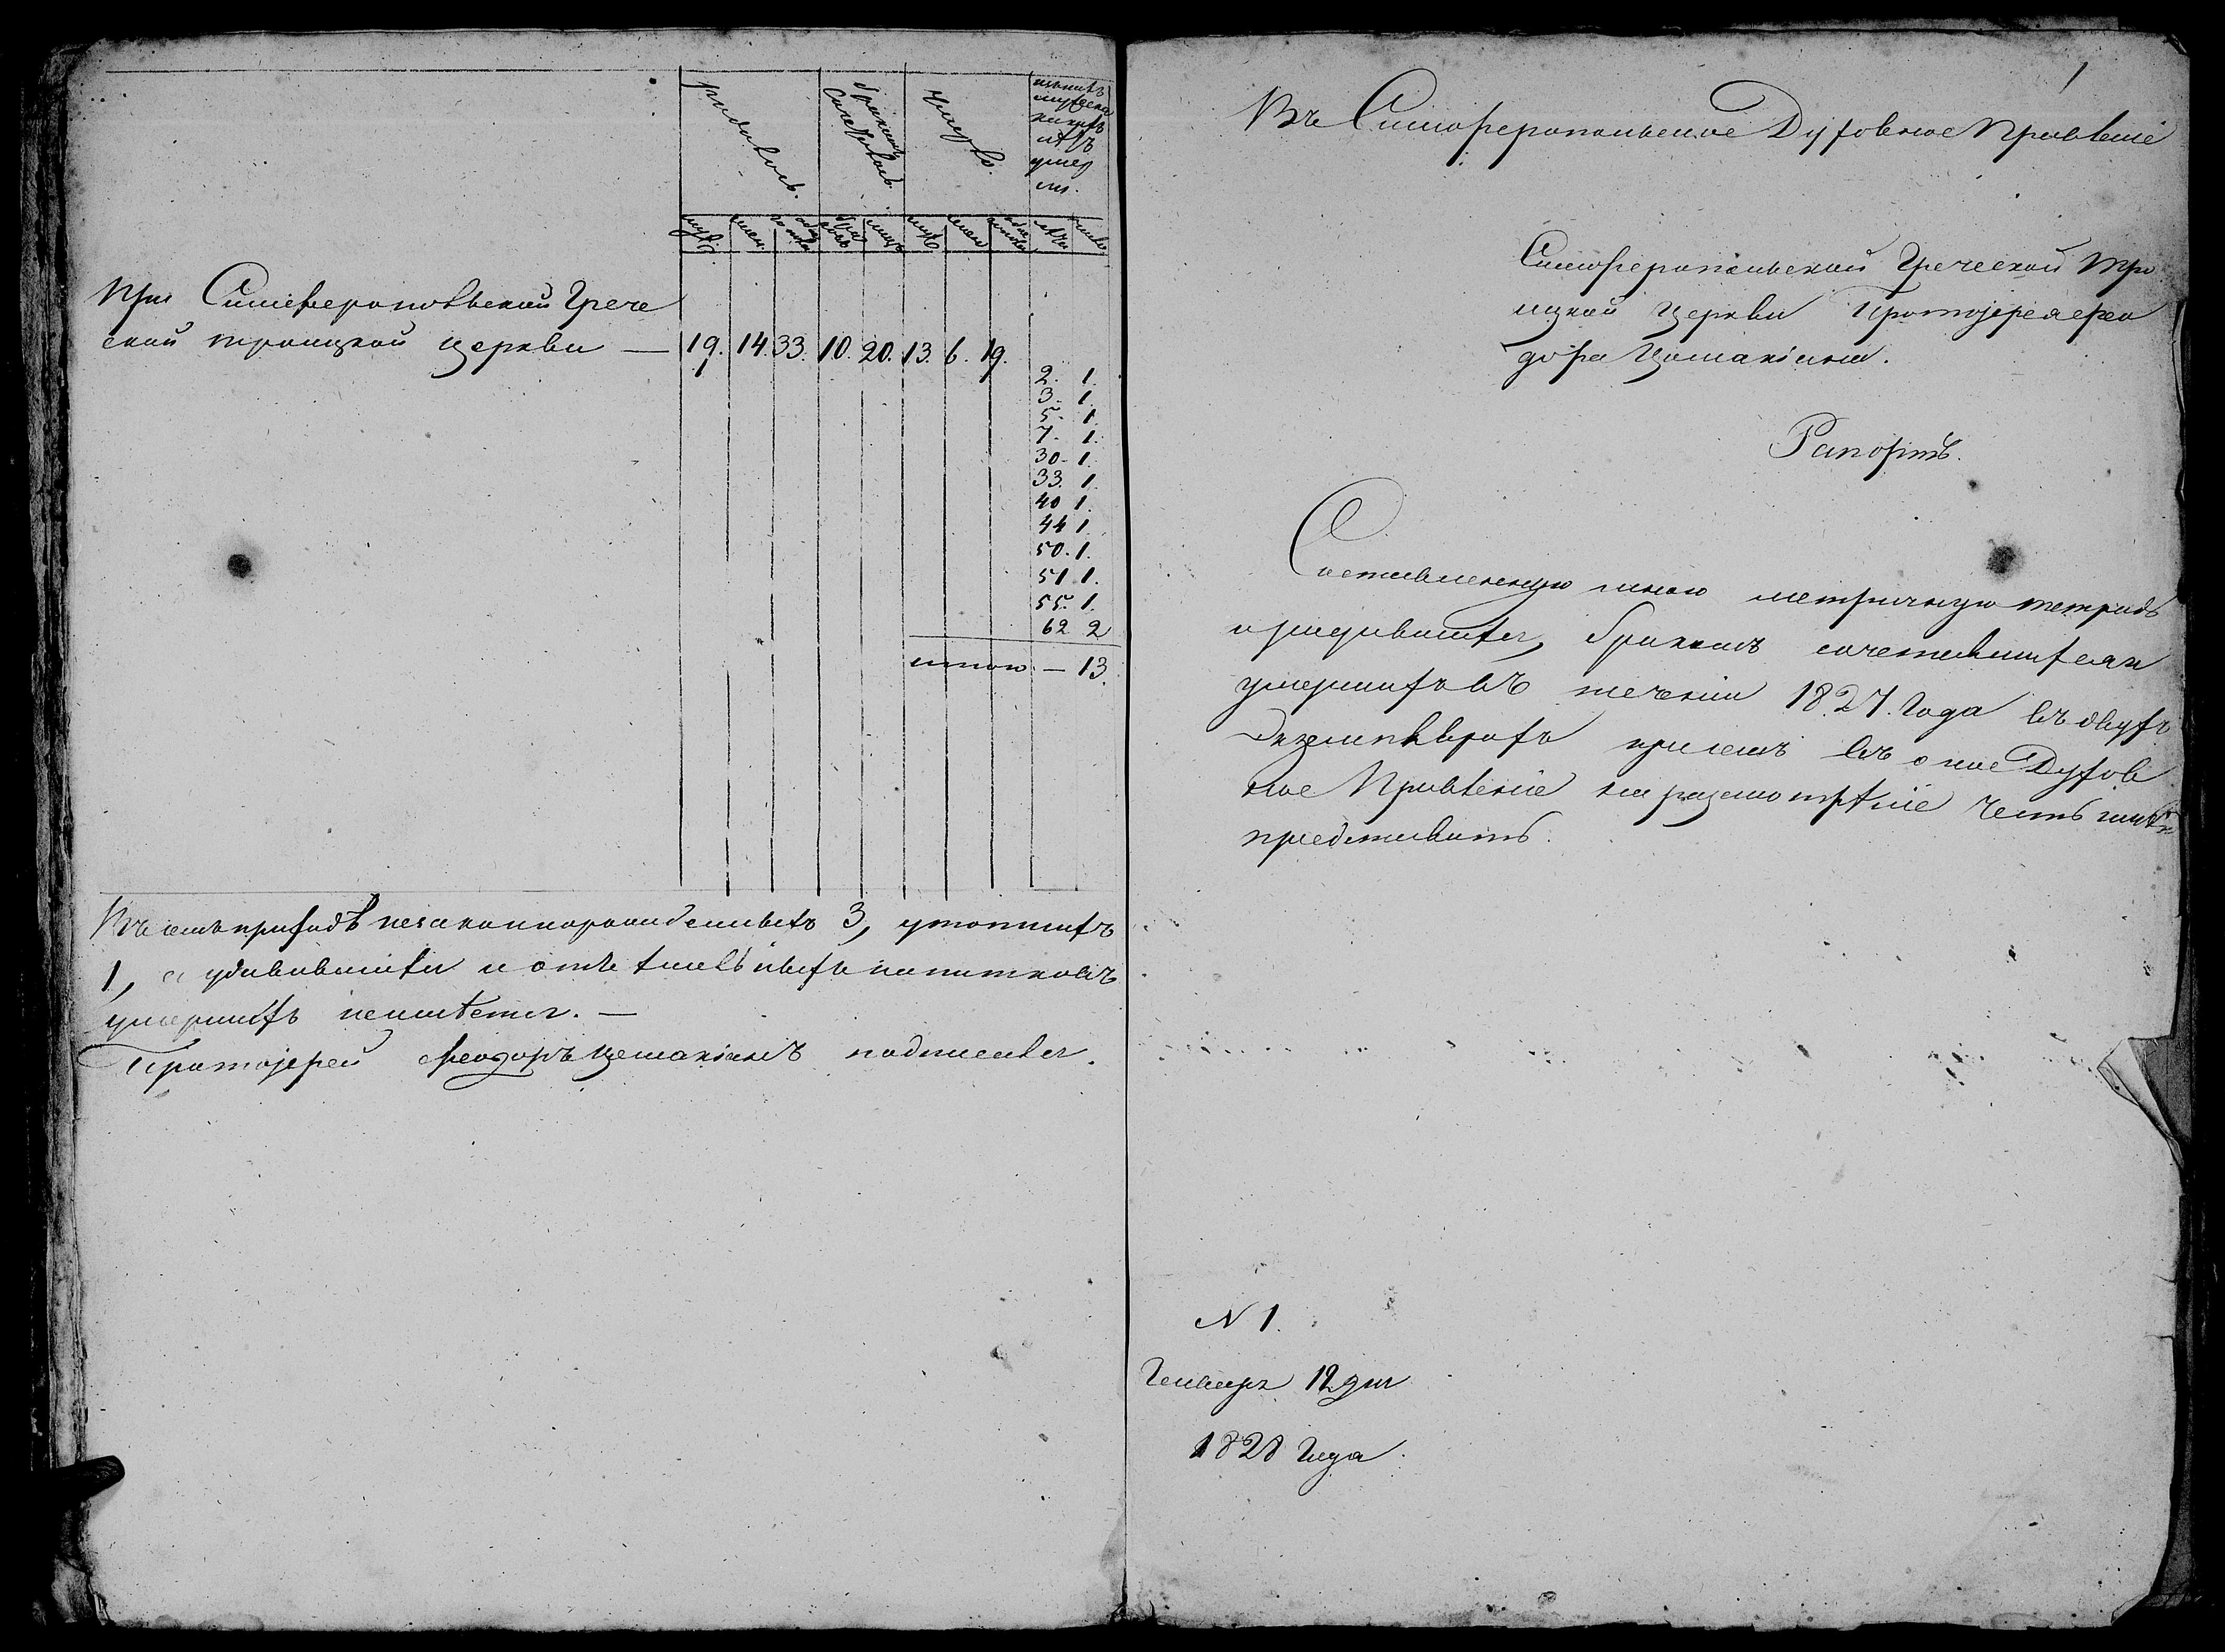 родилось.
бракомъ сочеталось
умерло.
мужеска
какихъ
лѣтъ
умер
ли.
муж. жен. обоего бра ковъ лицъ муж жен обоего лѣты число
При Симферопольской Грече
ской троицкой церкви — 19. 14. 33. 10. 20. 13. 6. 19.
2. 1.
3. 1.
5. 1.
7. 1.
30. 1.
33. 1.
40 1.
44 1.
50. 1.
51 1.
55. 1.
62 2
итого — 13.
Въ семъ приходѣ незаконнорожденныхъ 3, утопшихъ
1, а удавившихся и отъ
умершихъ неимѣется. —
Протоіерей Феодоръ Цомакіонъ
1
Въ Симферопольское Духовное Правленіе
Симферопольской Греческой Тро
ицкой Церкви Протоіерея Фео
дора Цомакіона.
Рапортъ.
Составленную мною метричную тетрадь
о родившихся, бракомъ сочетавшихся и
умершихъ въ теченіи 1827. Года въ двухъ
экземплярахъ при семъ въ оное Духов
ное Правленіе на разсмотрѣніе честь имѣю
представить.
N 1.
Генваря 12 дня
1828 Года